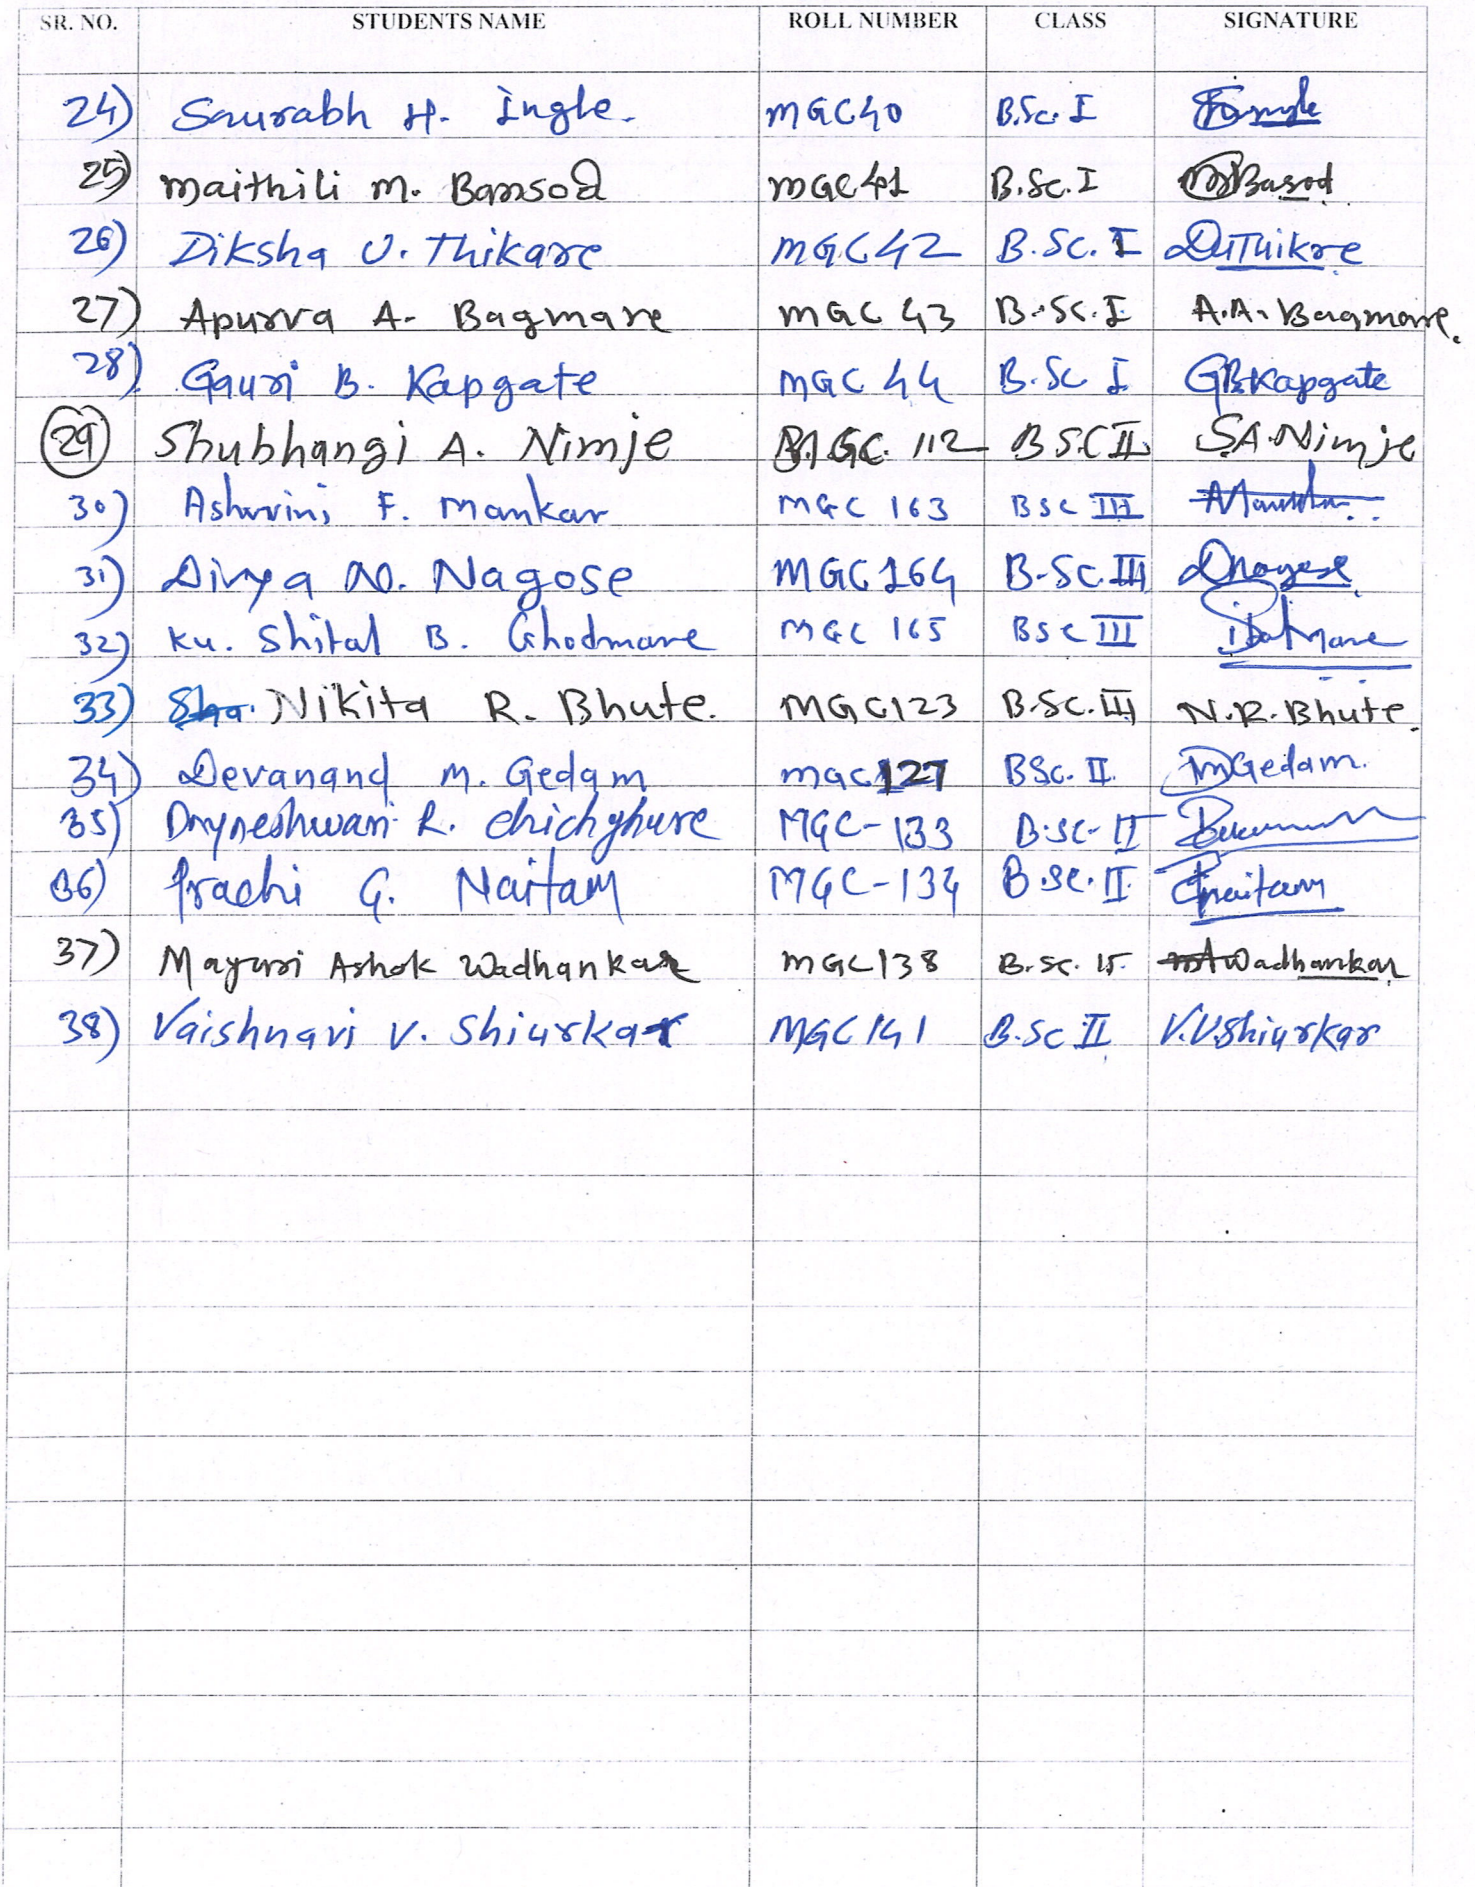 SR. NO. STUDENTS NAME ROLL NUMBER CLASS SIGNATURE
24) Saurabh H. Ingle. MGC40 B.Sc. I
25) Maithili M. Bansod MGC41 B.Sc. I MBasod
26) Diksha U. Thikare MGC42 B.Sc. I DUThikre
27) Apurva A. Bagmare MGC 43 B.Sc. I A.A. Bagmare.
28) Gauri B. Kapgate MGC 44 B.Sc I GBKapgate
29 Shubhangi A. Nimje MGC. 112 BSC II S.A.Nimje
30) Ashwini F. Mankar MGC 163 BSC III
31) Divya N. Nagose MGC164 B.SC.III
32) Ku. Shital B. Ghodmare MGC 165 BSC III
33) Sha. Nikita R. Bhute. MGC123 B.SC.III N.R.Bhute.
34) Devanand M. Gedam MGC127 BSc. II DMGedam.
35) Dnyneshwari R. Chichghure MGC-133 B.SC-II
36) Prachi G. Naitam MGC-134 B.SC.II Pnaitam
37) Mayuri Ashok Wadhankar MGC138 B.SC. II MAWadhankar
38) Vaishnavi V. Shiurkar MGC141 B.Sc II V.V.Shiurkar